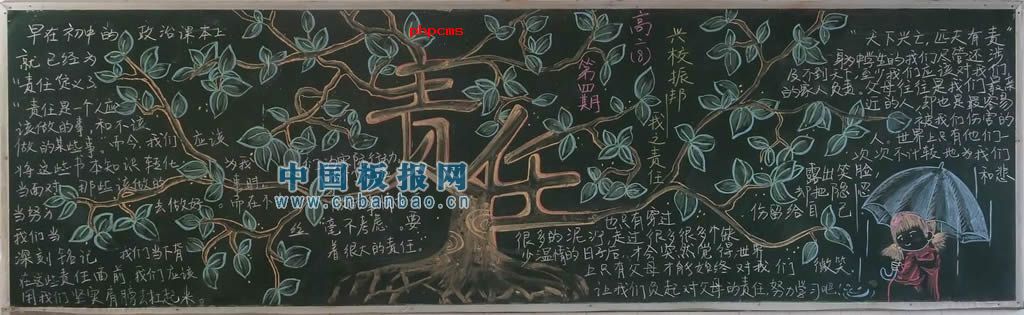 早在初中的政治课本上
就已经为
“责任”定义了
“责任是一个人应
该做的事,和不该
做的某些事。而今,我们应该
将这些书本知识转化为我
当面对那些该做的
当努力去做好,而在不
我们当
深刻铭记
毫不考虑。要
着很大的责任。
我们当下肩
在这些责任面前,我们应该
用我们坚实肩膀去扛起来。
责任
phpcms
中国板报网
www.cnbanbao.cn
高二(8)
第四期
兴校振邦
我之责任
“天下兴亡,匹夫有责”
身为学生的我们尽管还涉
及不到天下,至少我们应该对我们
的家人负责。父母往往是我们最亲
近的人,却也是最容易
被我们伤害的
人。世界上只有他们一
次次不计较地为我们
露出笑脸,
却把隐忍和悲
伤留给自己
也只有穿过
很多的泥泞,走过很多很多个缺
少温情的日子后,才会突然觉得世界
上只有父母才能始终对我们微笑
让我们负起对父母的责任努力学习吧!